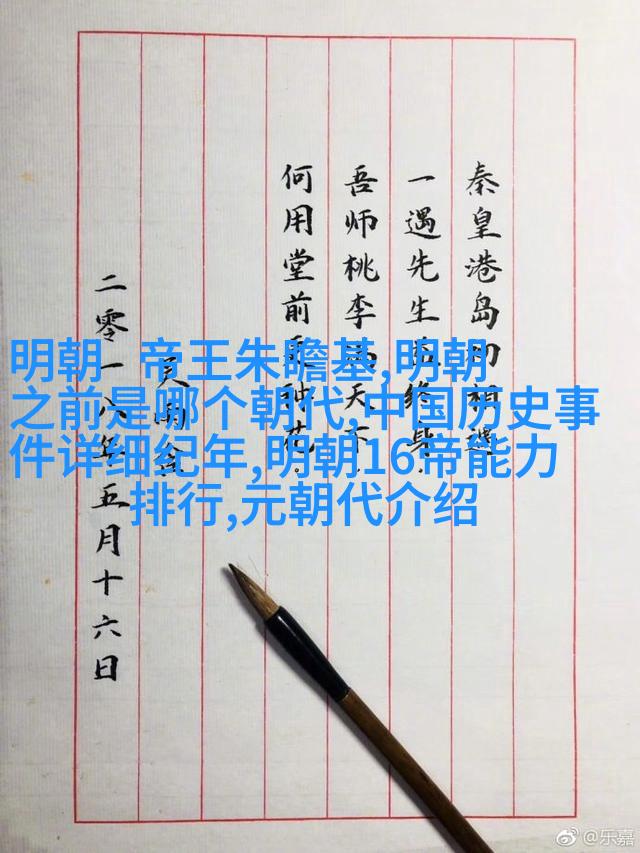 秦皇港岛初相逢
一遇先生五终身
吾师桃李满天下
何用堂前更种花
吴雨金
二零一八年五月十六日
明朝 帝王朱瞻基,明朝
之前是哪个朝代,中国历史事
件详细纪年,明朝16帝能力
排行,元朝代介绍
@乐嘉